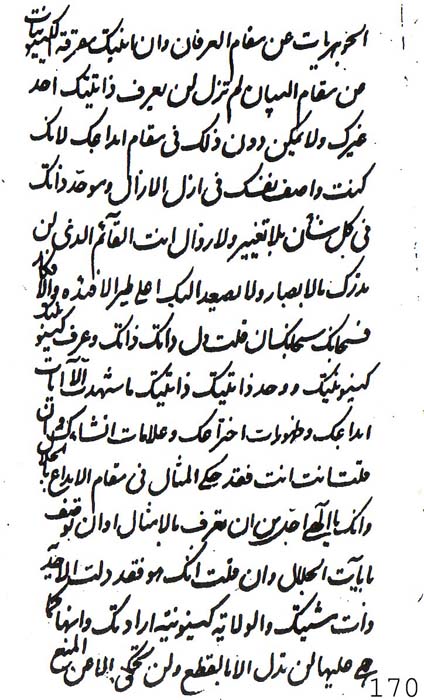 الجوهريات عن مقام العرفان وان انيتك مفرقة الكينونيات
عن مقام البيان لم تزل لن يعرف ذاتيتك احد
غيرك ولا يمكن دون ذلك في مقام ابداعك لانك
كنت واصف نفسك في ازل الازال وموحد ذاتك
في كل شأن بلا تغيير ولا زوال انت القائم الذي لن
يدرك بالابصار ولا يصعد اليك اعلى طير الافئدة والافكار
فسبحانك سبحانك ان قلت دل ذاتك ذاتك وعرف كينونيتك
كينونيتك ووحد ذاتيتك ذاتيتك ما شهدت الا آيات
ابداعك وظهورات اختراعك وعلامات انشائك وان
قلت انت انت فقد حكى المثال في مقام الابداع
وانك يا الهي اجل من ان تعرف بالامثال او ان توصف
بايات الجلال وان قلت انك هو فقد دلت الاحدية
ذات مشيتك والولاية كينونية ارادتك وانهما كما
هي عليها لن تدل الا بالقطع ولن تحكي الا عن المنع
170